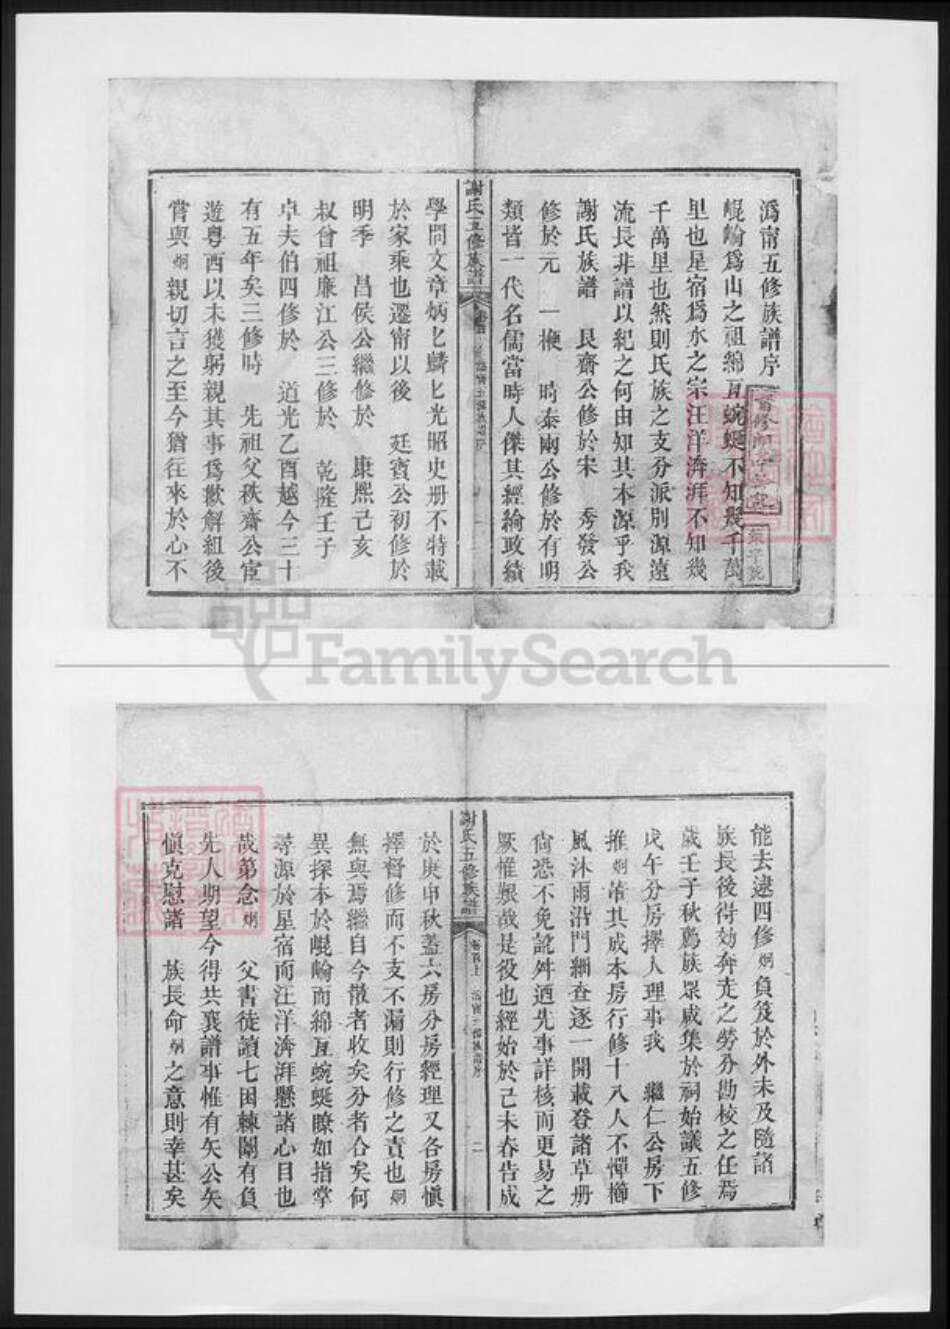 溈甯五修族譜序
崐崘爲山之祖綿亙蜿蜒不知幾千萬
里也星宿爲水之宗汪洋湃不知幾
千萬里也然則氏族之支分派別源遠
流長非譜以紀之何由知其本源乎我
謝氏族譜　艮齋公修於宋　秀發公
修於元　一榳　時泰兩公修於有明
類皆一代名儒當時人傑其經綸政績
謝氏五修族譜
學問文章炳匕麟匕光昭史册不特載
於家乘也遷甯以後　廷賓公初修於
明季　昌侯公繼修於　康熙己亥
叔曾祖廉江公三修於　乾隆壬子
卓夫伯四修於　道光乙酉越今三十
有五年矣三修時　先祖父秩齋公宦
遊粵西以未獲躬親其事爲歉解組後
嘗與炯親切言之至今猶往來於心不
能去逮四修炯負笈於外未及隨諸
族長後得効奔走之勞分勘校之任焉
歲壬子秋薦族衆咸集於祠始議五修
戊午分房擇人理事我　繼仁公房下
推炯董其成本房行修十八人不憚櫛
風沐雨沿門細查逐一開載登諸草册
尙恐不免訛舛迺先事詳核而更易之
厥惟艱哉是役也經始於己未春告成
謝氏五修族譜
卷首上
二
於庚申秋蓋六房分房經理又各房愼
擇督修而不支不漏則行修之責也炯
無與焉繼自今散者收矣分者合矣何
異探本於崐崘而綿亙蜿蜒瞭如指掌
尋源於星宿而汪洋湃懸諸心目也
哉第念炯　父書徒讀七困棘闈有負
先人期望今得共襄譜事惟有矢公矢
愼克慰諸　族長命炯之意則幸甚矣
FamilySearch